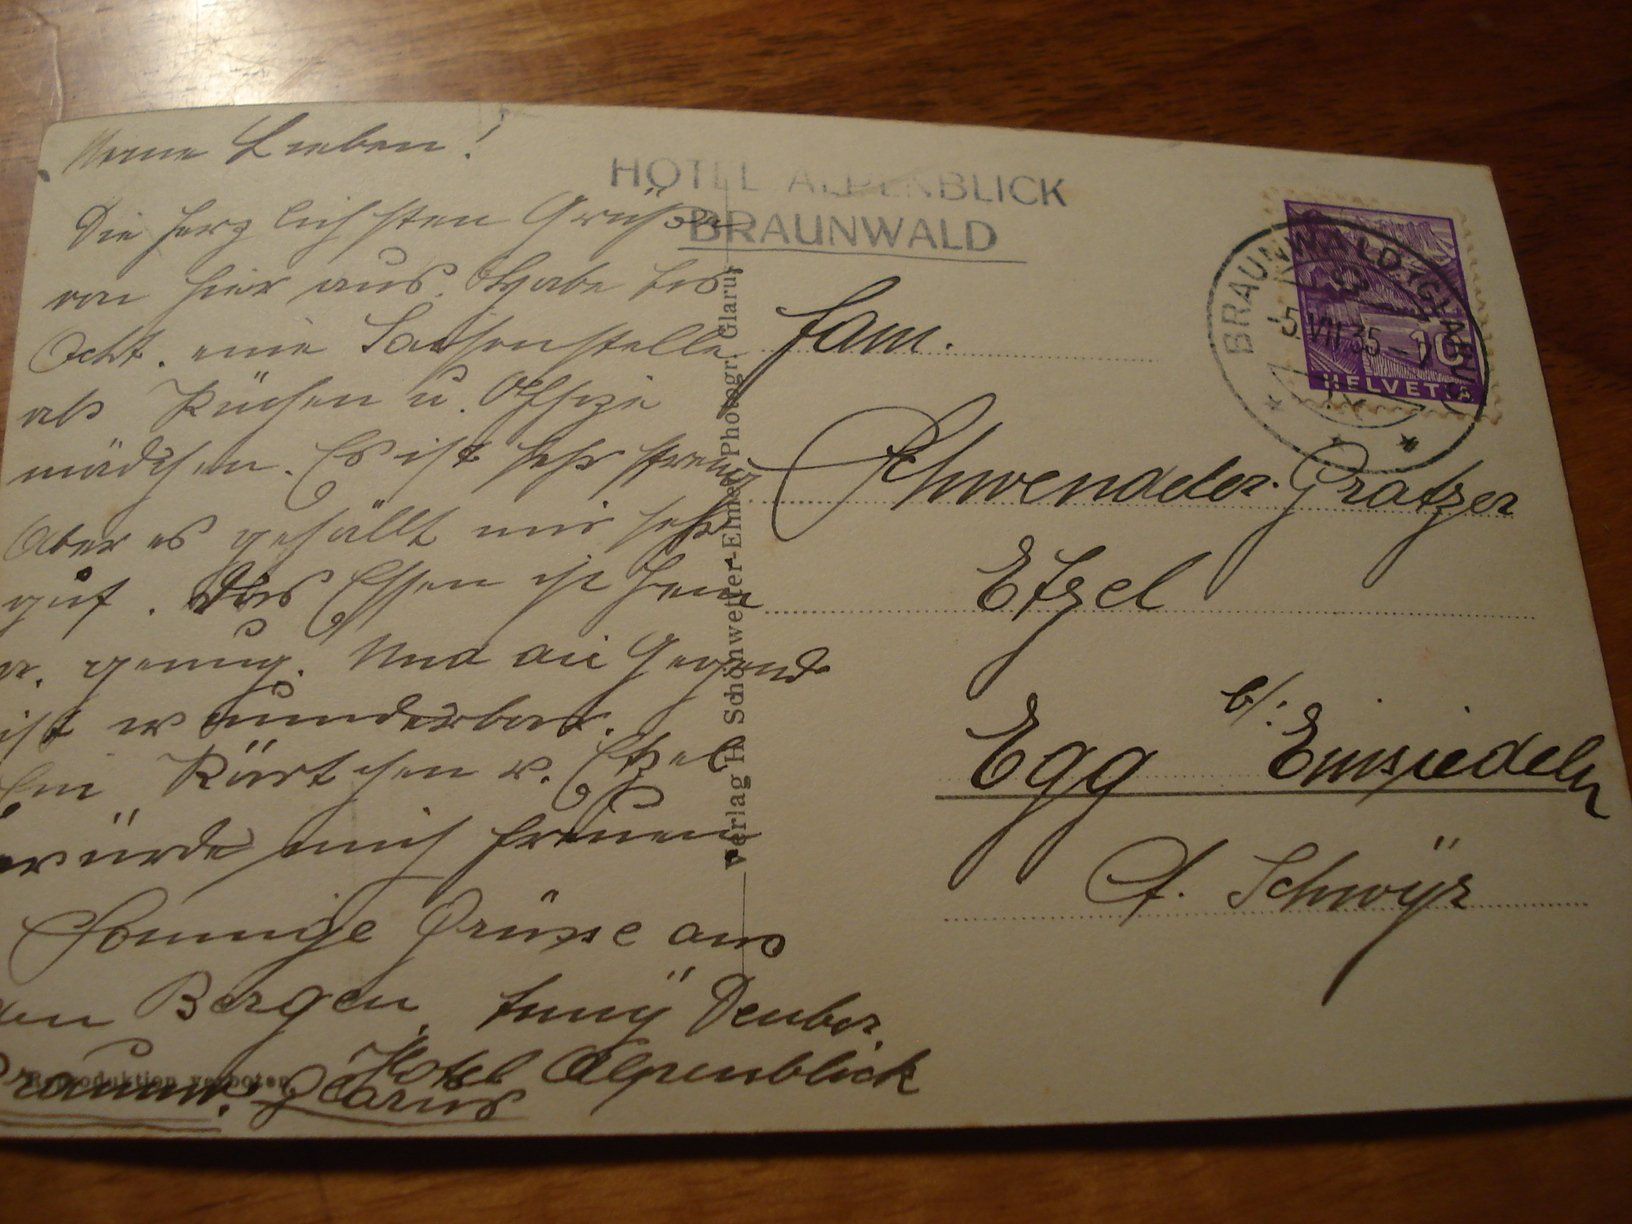 Meine Lieben!
Die herzlichsten Grüsse
von hier aus. Habe bis
Okt. eine Saisonstelle
als Küchen u. Offize
mädchen. Es ist sehr streng
Aber es gefällt mir sehr
gut. Das Essen ist
genug. Und die Gegend
ist wunderbar.
Ein Kärtchen v. Etzel
würde mich freuen
Sonnige Grüsse aus
den Bergen
Deuber.
Hotel Alpenblick
Braunw. Glarus
Reproduktion verboten
Verlag H. Schönwetter-Elmer, Photogr. Glarus
HOTEL ALPENBLICK
BRAUNWALD
BRAUNWALD (GLARUS)
VII 35
10
HELVETIA
Fam.
Schwendeler-Grätzer
Etzel
Egg b/. Einsiedeln
Schwÿz